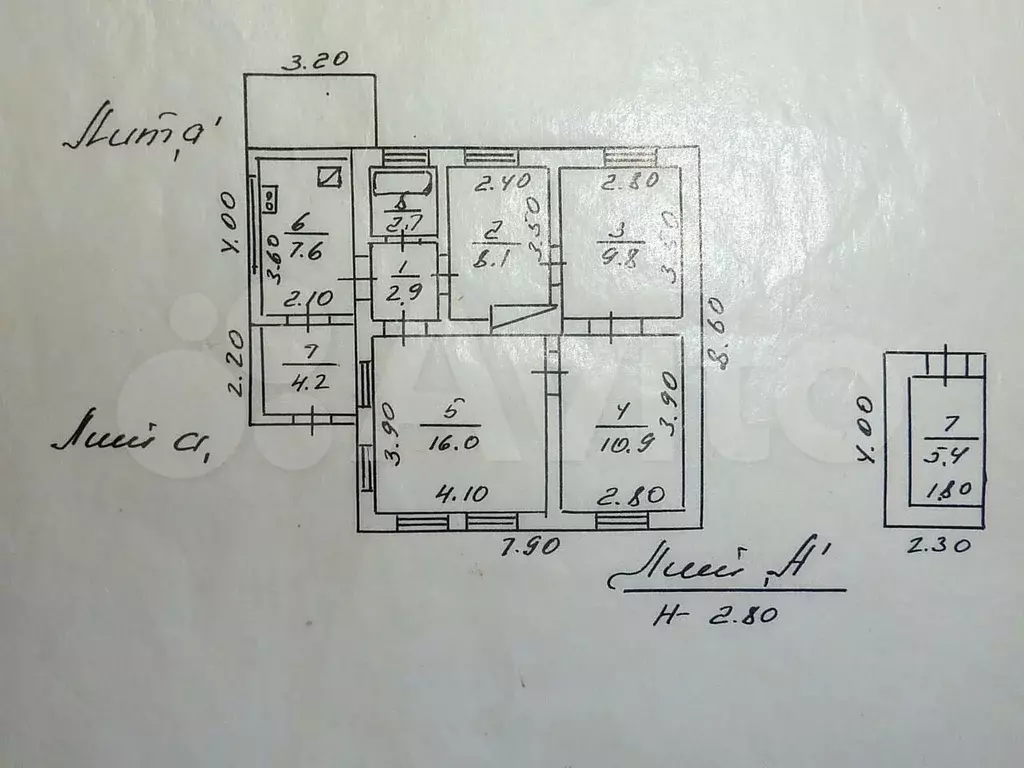 3.20
Лит „а'
4.00
6
7.6
3.60
2.10
8
2.7
1
2.9
2.40
2
8.1
3.50
2.80
3
9.8
3.50
2.20
7
4.2
8.60
Лит а,
5
16.0
3.90
4.10
4
10.9
3.90
2.80
7.90
4.00
7
5.4
1.80
2.30
Лит „А'
H- 2.80
Avito